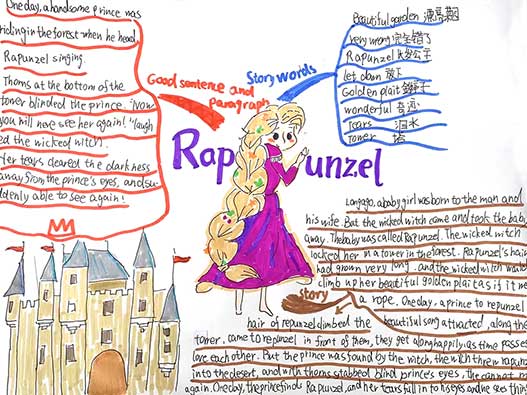 One day, a handsome prince was
riding in the forest when he head
Rapunzel singing.
Thoms at the bottom of the
tower blinded the prince. "Now
you will neve see her again! "laugh
ed the wicked witch.
Her tears cleared the darkness
away from the prince's eyes, and su
ddenly able to see again!
Good sentence and
paragraph
Story words
Beautiful garden 漂亮花园
very wrong 完全错了
Rapunzel 长发公主
let down 放下
Golden plait
wonderful 奇迹
Tears 泪水
Tower 塔
Rapunzel
story
Long ago, a baby girl was born to the man and
his wife. But the wicked witch came and took the bab
away. The baby was called Rapunzel. The wicked witch
locked her in a tower in the forest. Rapunzel's hair
had grown very long. and the wicked witch
climb up her beautiful golden plait as if it we
a rope. One day, a prince to repunzel
beautiful song attracted, along the
hair of repunzel climbed the
tower, came to repunzel in front of them, they get along happily, as time passes
love each other. But the prince was found by the witch, the witch threw
into the desert, and with thoms stabbed blind prince's eyes, the cannot
again. One day, the prince finds Rapunzel, and her tears fill in to his eyes and he sees